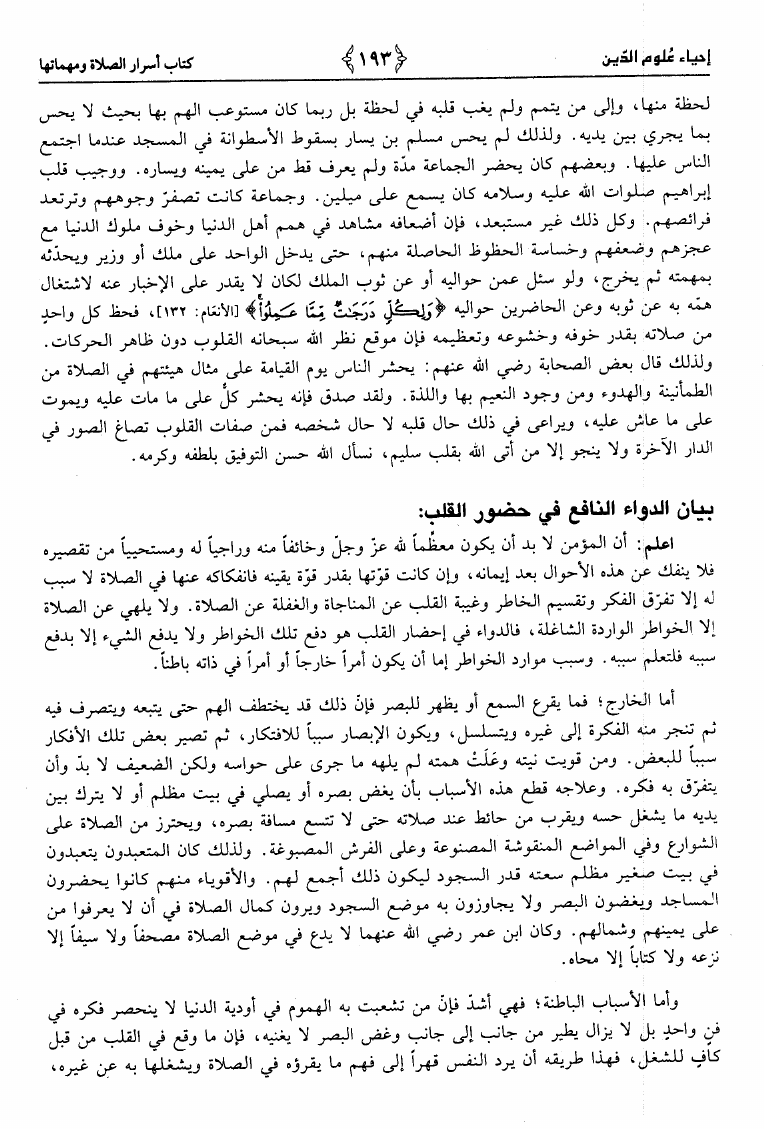 إحياء عُلوم الدّين ﴿١٩٣﴾ كتاب أسرار الصلاة ومهماتها
لحظة منها، وإلى من يتمم ولم يغب قلبه في لحظة بل ربما كان مستوعب الهم بها بحيث لا يحس
بما يجري بين يديه. ولذلك لم يحس مسلم بن يسار بسقوط الأسطوانة في المسجد عندما اجتمع
الناس عليها. وبعضهم كان يحضر الجماعة مدّة ولم يعرف قط من على يمينه ويساره. ووجيب قلب
إبراهيم صلوات الله عليه وسلامه كان يسمع على ميلين. وجماعة كانت تصفرّ وجوههم وترتعد
فرائصهم. وكل ذلك غير مستبعد، فإن أضعافه مشاهد في همم أهل الدنيا وخوف ملوك الدنيا مع
عجزهم وضعفهم وخساسة الحظوظ الحاصلة منهم، حتى يدخل الواحد على ملك أو وزير ويحدّثه
بمهمته ثم يخرج، ولو سئل عمن حواليه أو عن ثوب الملك لكان لا يقدر على الإخبار عنه لاشتغال
همّه به عن ثوبه وعن الحاضرين حواليه ﴿وَلِكُلٍّ دَرَجَٰتٌ مِّمَّا عَمِلُواْ﴾ [الأنعَام: ١٣٢]، فحظ كل واحدٍ
من صلاته بقدر خوفه وخشوعه وتعظيمه فإن موقع نظر الله سبحانه القلوب دون ظاهر الحركات.
ولذلك قال بعض الصحابة رضي الله عنهم: يحشر الناس يوم القيامة على مثال هيئتهم في الصلاة من
الطمأنينة والهدوء ومن وجود النعيم بها واللذة. ولقد صدق فإنه يحشر كلٌّ على ما مات عليه ويموت
على ما عاش عليه، ويراعى في ذلك حال قلبه لا حال شخصه فمن صفات القلوب تصاغ الصور في
الدار الآخرة ولا ينجو إلا من أتى الله بقلب سليم، نسأل الله حسن التوفيق بلطفه وكرمه.
بيان الدواء النافع في حضور القلب:
اعلم: أن المؤمن لا بد أن يكون معظّماً لله عزّ وجلّ وخائفاً منه وراجياً له ومستحيياً من تقصيره
فلا ينفك عن هذه الأحوال بعد إيمانه، وإن كانت قوّتها بقدر قوّة يقينه فانفكاكه عنها في الصلاة لا سبب
له إلا تفرّق الفكر وتقسيم الخاطر وغيبة القلب عن المناجاة والغفلة عن الصلاة. ولا يلهي عن الصلاة
إلا الخواطر الواردة الشاغلة، فالدواء في إحضار القلب هو دفع تلك الخواطر ولا يدفع الشيء إلا بدفع
سببه فلتعلم سببه. وسبب موارد الخواطر إما أن يكون أمراً خارجاً أو أمراً في ذاته باطناً.
أما الخارج؛ فما يقرع السمع أو يظهر للبصر فإنّ ذلك قد يختطف الهم حتى يتبعه ويتصرف فيه
ثم تنجر منه الفكرة إلى غيره ويتسلسل، ويكون الإبصار سبباً للافتكار، ثم تصير بعض تلك الأفكار
سبباً للبعض. ومن قويت نيته وعَلَتْ همته لم يلهه ما جرى على حواسه ولكن الضعيف لا بدّ وأن
يتفرّق به فكره. وعلاجه قطع هذه الأسباب بأن يغض بصره أو يصلي في بيت مظلم أو لا يترك بين
يديه ما يشغل حسه ويقرب من حائط عند صلاته حتى لا تتسع مسافة بصره، ويحترز من الصلاة على
الشوارع وفي المواضع المنقوشة المصنوعة وعلى الفرش المصبوغة. ولذلك كان المتعبدون يتعبدون
في بيت صغير مظلم سعته قدر السجود ليكون ذلك أجمع لهم. والأقوياء منهم كانوا يحضرون
المساجد ويغضون البصر ولا يجاوزون به موضع السجود ويرون كمال الصلاة في أن لا يعرفوا من
على يمينهم وشمالهم. وكان ابن عمر رضي الله عنهما لا يدع في موضع الصلاة مصحفاً ولا سيفاً إلا
نزعه ولا كتاباً إلا محاه.
وأما الأسباب الباطنة؛ فهي أشدّ فإنّ من تشعبت به الهموم في أودية الدنيا لا ينحصر فكره في
فن واحدٍ بل لا يزال يطير من جانب إلى جانب وغض البصر لا يغنيه، فإن ما وقع في القلب من قبل
كافٍ للشغل، فهذا طريقه أن يرد النفس قهراً إلى فهم ما يقرؤه في الصلاة ويشغلها به عن غيره،